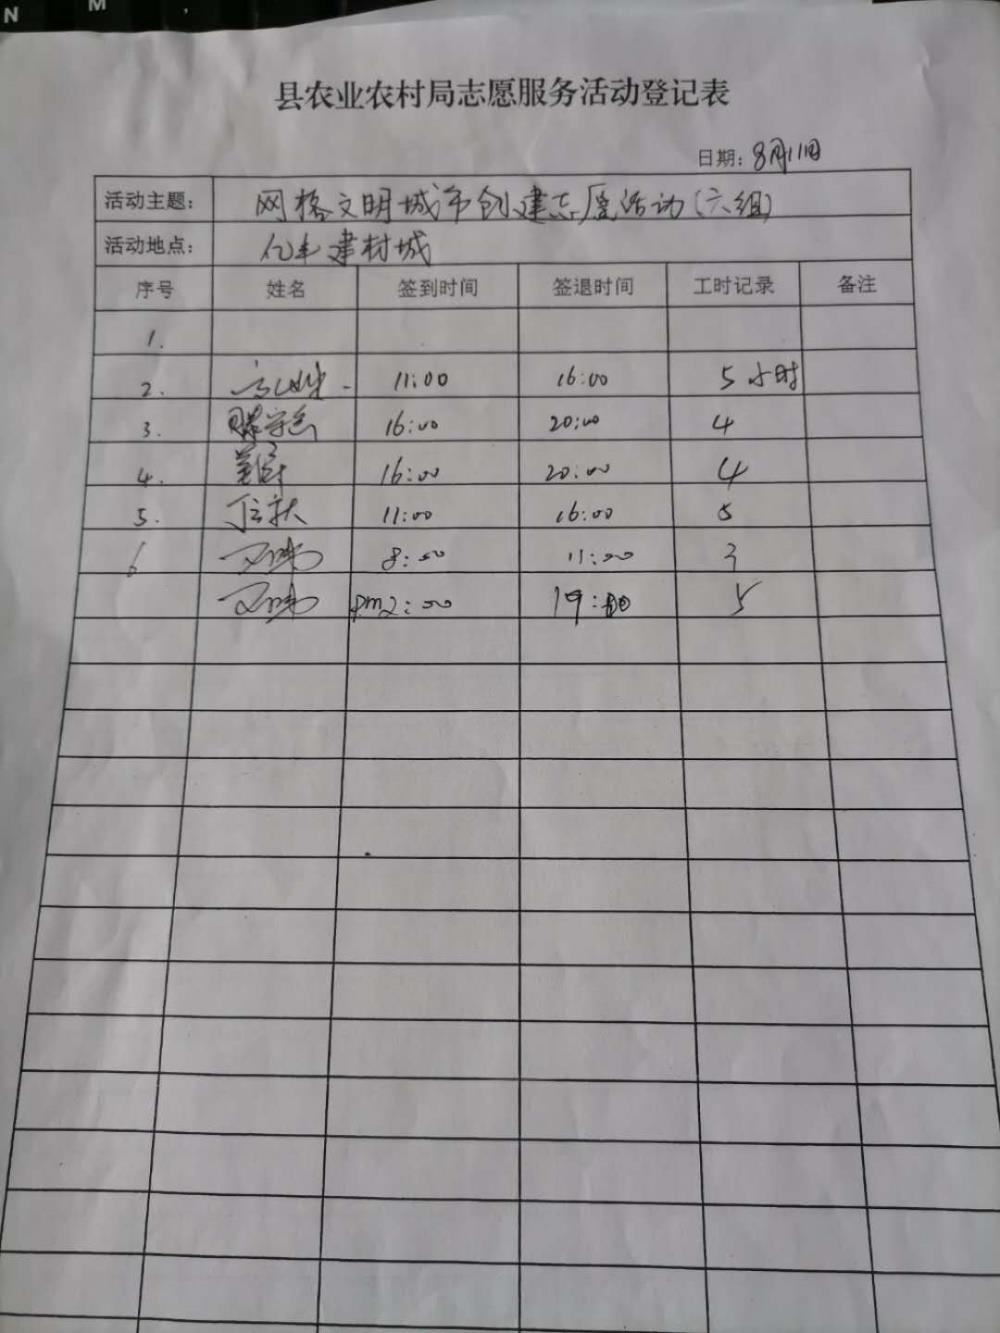 N M ,
县农业农村局志愿服务活动登记表
日期: 8月11日
活动主题: 网格文明城市创建志愿活动(六组)
活动地点: 亿丰建材城
序号 姓名 签到时间 签退时间 工时记录 备注
1.
2. 11:00 16:00 5小时
3. 16:00 20:00 4
4. 16:00 20:00 4
5. 11:00 16:00 5
6 8:00 11:00 3
pm2:00 19:00 5